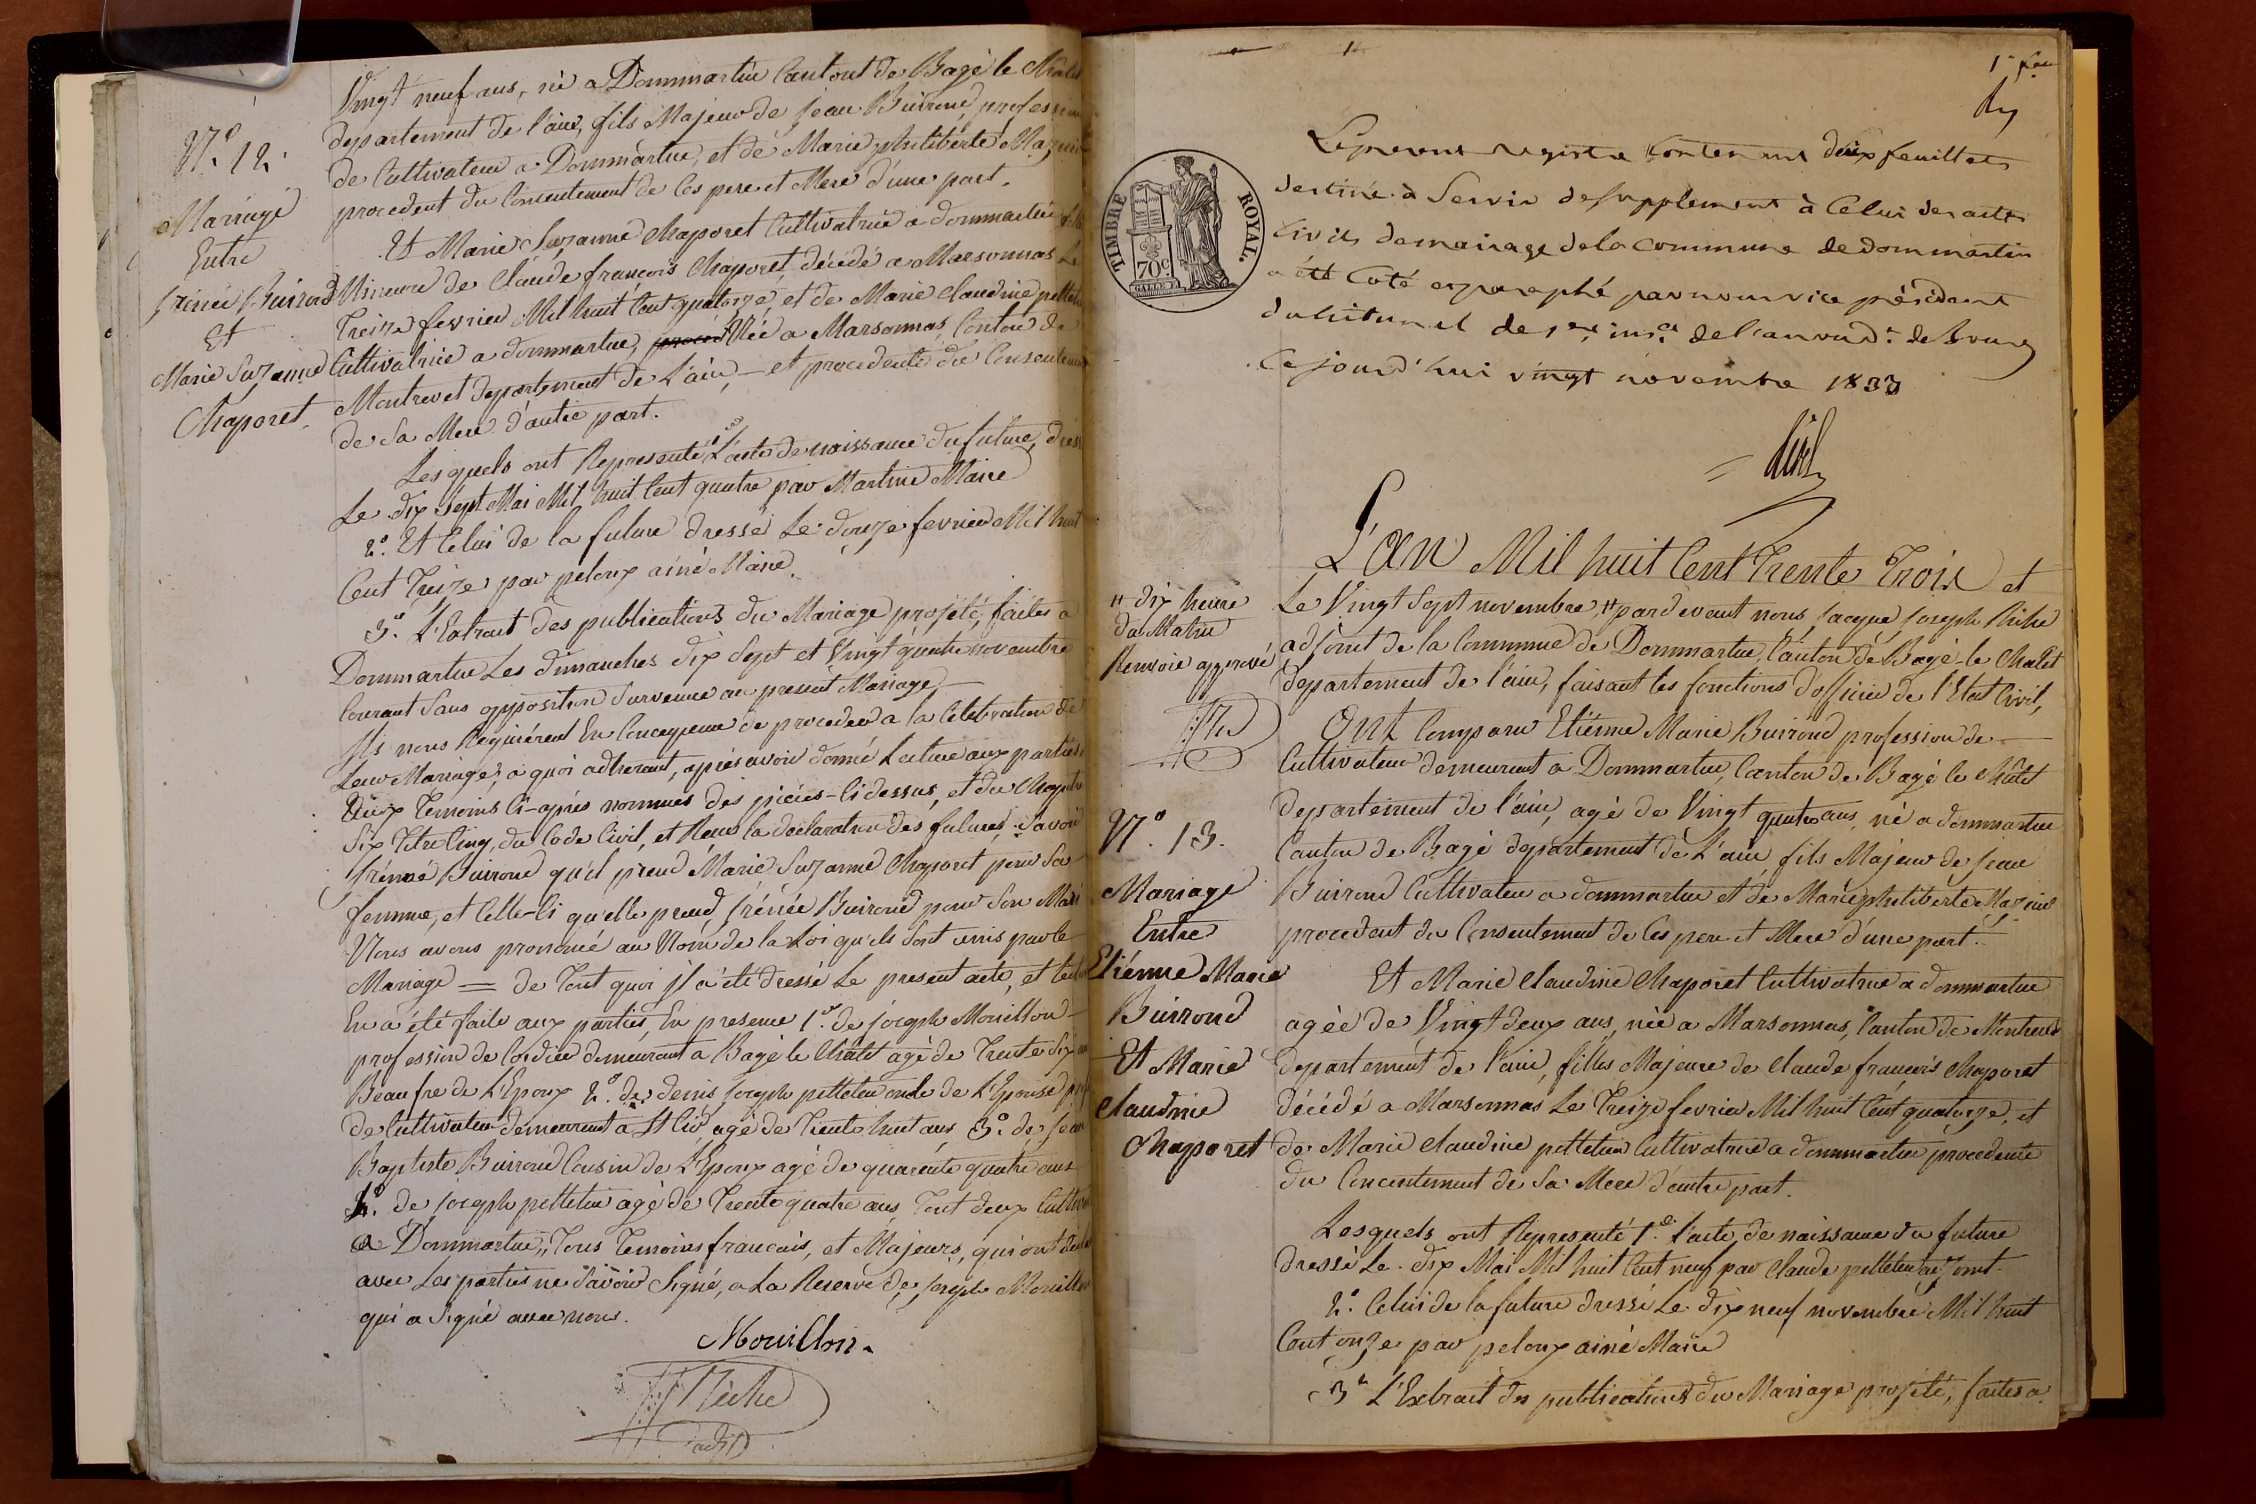 Vingt neuf ans, né a Dommartin Cantont de Bagé le Chatel
departement de l'ain, fils Majeur de Jean Buiroud, profession
de Cultivateur a Dommartin, et de Marie philiberte Mazuir
procedent du Consentement de Ces pere et Mere d'une part.
N.º 12.
Mariage
Entre
Irénée Buiroud
Et
Marie Suzanne
Chaporet.
Et Marie Suzanne Chaporet Cultivatrice a dommartin fille
Mineure de Claude françois Chaporet, décédé a Marsonnas Le
Treize fevrier Mil huit Cent quatorze, et de Marie Claudine pelletin
Cultivatrice a dommartin, Née a Marsonnas, Canton de
Montrevet departement de L'ain, et procedente du Consentement
de Sa Mere d'autre part.
Lesquels ont Representé 1º L'acte de naissance du future, dressé
Le dix Sept Mai Mil huit Cent quatre par Martine Maire
2º. Et Celui de la future dressé Le douze fevrier Mil huit
Cent Treize par peloux ainé Maire.
3º. L'Extrait des publications du Mariage projeté, faites a
Dommartin Les dimanches dix Sept et Vingt quatre novembre
Courant Sans opposition Survenue au present Mariage,
Ils nous Requirérent En Concequence de proceder a la Celebration de
Leur Mariage, a quoi adherant, après avoir donné Lecture aux parties
aux Temoins Ci-après nommés des pieces-Ci dessus, et du Chapitre
Six Titre Cinq, du Code Civil, et Recus la declaration des futures, Savoir
Irénée Buiroud qu'il prend Marie Suzanne Chaporet pour Sa
femme, et Celle-Ci qu'elle prend Irénée Buiroud pour Son Mari
Nous avons prononcé au Nom de la Loi qu'ils Sont unis par le
Mariage = de Tout quoi il a été dressé Le present acte, et lecture
En a été faite aux parties, En presence 1º. de Joseph Mouillon
profession de Cordier demeurant a Bagé le Chatel agé de Trente Six ans
Beaufre de L'Epoux 2º. de denis Joseph pelletin oncle de L'Epouse
de Cultivateur demeurant a St Cir, agé de Trente huit ans 3º. de Jean
Baptiste Buiroud Cousin de L'Epoux agé de quarente quatre ans
4º. de Joseph pelletin agé de Trente quatre ans Tout deux
a Dommartin, Tous Temoins francais, et Majeurs, qui ont
avec Les parties ne Savoir Signé, a La Reserve de Joseph Mouillon
qui a Signé avec nous.
Mouillon
Riche
adjt
Le present registre contenant deux feuillets
destiné à Servir de Supplement à Celui des actes
Civils de mariage de la commune de dommartin
a été Coté et paraphé par nous vice président
du tribunal de 1ere insce de l'arrondt de Bourg
Ce jourd'hui vingt novembre 1833
TIMBRE ROYAL.
70c
L'an Mil huit Cent Trente Trois et
Le Vingt Sept novembre, # pardevant nous, Jacque Joseph Riche
adjoint de la Commune de Dommartin, Canton de Bagé-le Chatel
departement de l'ain, faisant les fonctions d'officier de l'Etat Civil,
# dix heure
du Matin
Renvoie approuvé
Ont Comparu Etiénne Marie Buiroud profession de
Cultivateur demeurant a Dommartin, Canton de Bagé le Châtel
departement de l'ain, agé de Vingt quatre ans, né a dommartin
Canton de Bagé departement de L'ain, fils Majeur de Jean
Buiroud Cultivateur a dommartin et de Marie philiberte Mazuir
procedent du Consentement de Ces pere et Mere d'une part.
N.º 13.
Mariage
Entre
Etiénne Marie
Buiroud
Et Marie
Claudine
Chaporet
Et Marie Claudine Chaporet Cultivatrice a dommartin
agée de Vingt deux ans, née a Marsonnas, Canton de Montrevet
departement de l'ain, filles Majeure de Claude françois Chaporet
décédé a Marsonnas Le Treize fevrier Mil huit Cent quatorze, et
de Marie Claudine pelletin Cultivatrice a dommartin procedente
du Concentement de Sa Mere d'autre part.
Lesquels ont Representé 1º. l'acte de naissance du future
dressé Le dix Mai Mil huit Cent neuf par Claude pelletin adjoint.
2º. Celui de la future dressé Le dix neuf novembre Mil huit
Cent onze par peloux ainé Maire
3º L'Extrait des publications du Mariage projeté, faites a